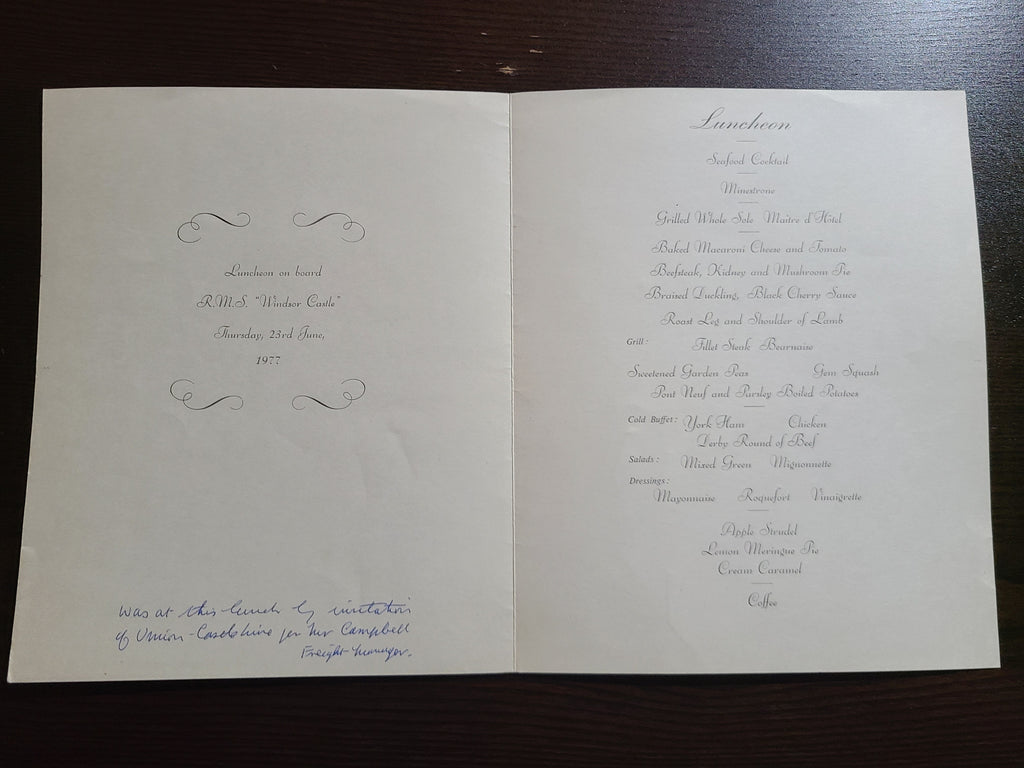 Luncheon on board
R.M.S. "Windsor Castle"
Thursday, 23rd June,
1977
was at this lunch by invitation
of Union-Castle Line per Mr Campbell
Freight Manager.
Luncheon
Seafood Cocktail
Minestrone
Grilled Whole Sole Maitre d'Hôtel
Baked Macaroni Cheese and Tomato
Beefsteak, Kidney and Mushroom Pie
Braised Duckling, Black Cherry Sauce
Roast Leg and Shoulder of Lamb
Grill: Fillet Steak Bearnaise
Sweetened Garden Peas Gem Squash
Pont Neuf and Parsley Boiled Potatoes
Cold Buffet: York Ham Chicken
Derby Round of Beef
Salads: Mixed Green Mignonnette
Dressings:
Mayonnaise Roquefort Vinaigrette
Apple Strudel
Lemon Meringue Pie
Cream Caramel
Coffee